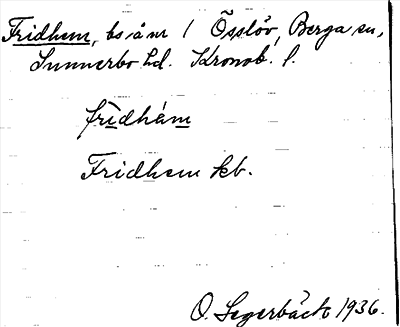 Fridhem, bs. å nr 1 Össlöv, Berga sn,
Sunnerbo hd. Kronob. l.
fridhäm
Fridhem kb.
O. Segerbäck 1936.